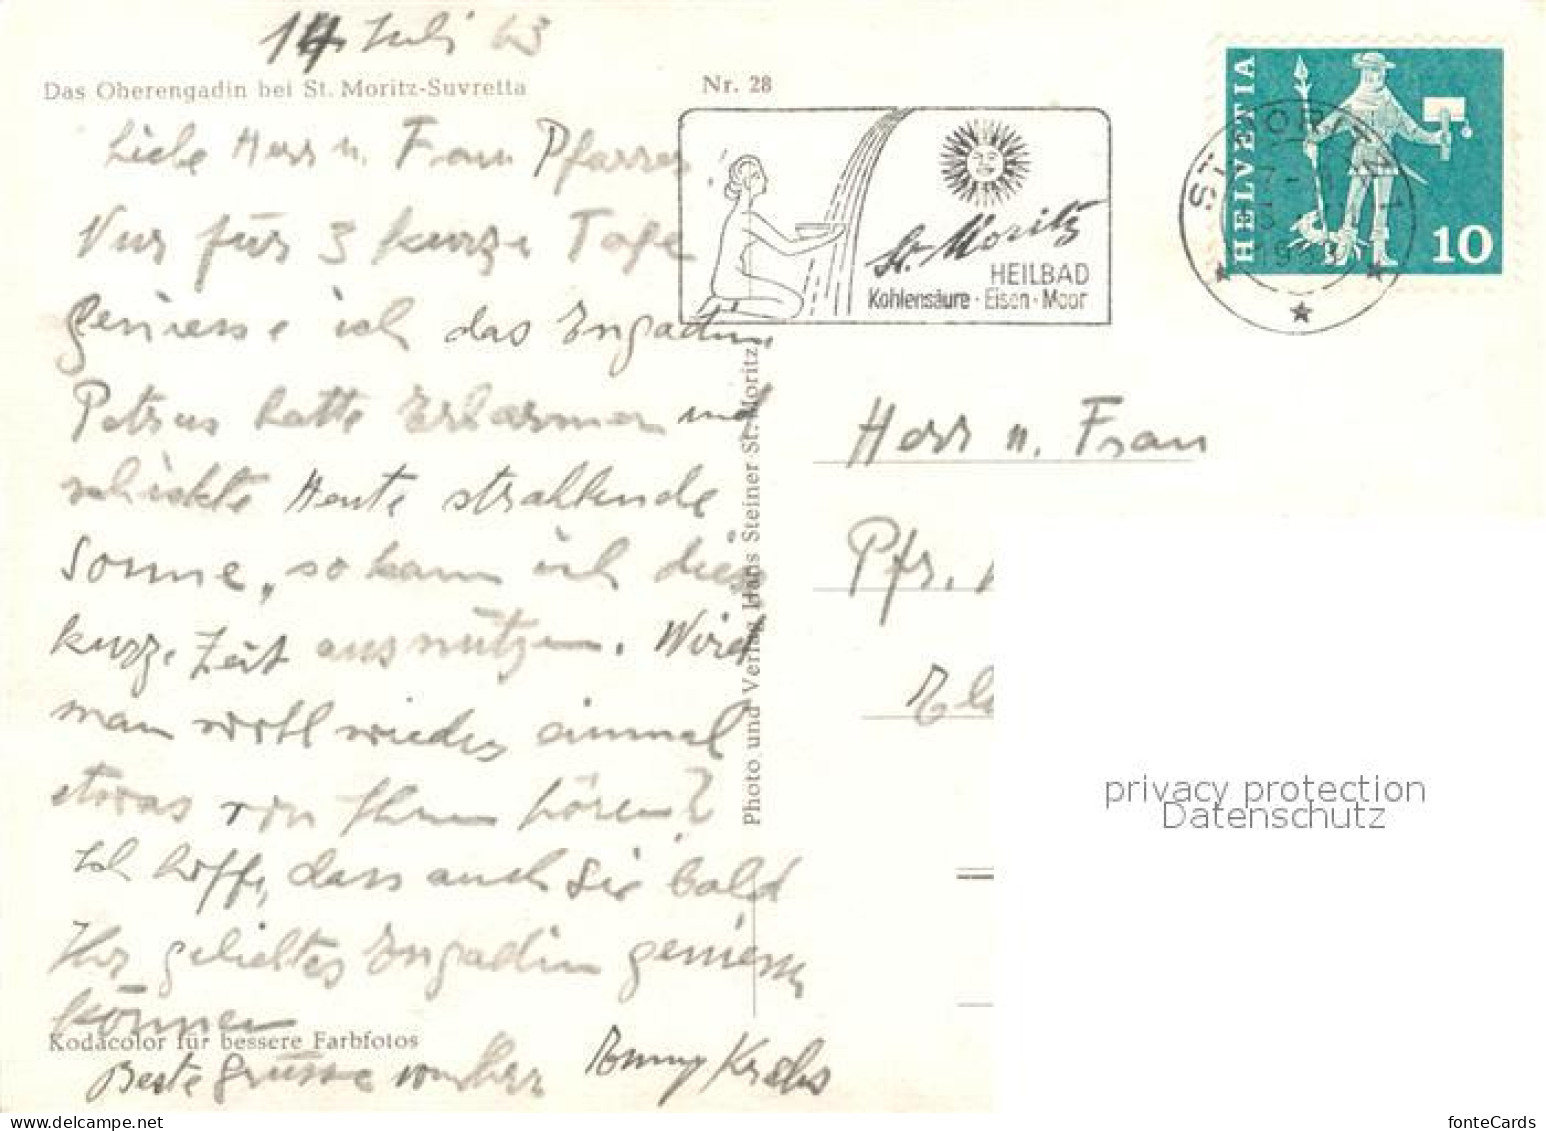 14. Juli 63
Das Oberengadin bei St. Moritz-Suvretta
Nr. 28
Liebe Herr u. Frau Pfarrer!
Nur für 3 kurze Tage
geniesse ich das Engadin.
Petrus hatte Erbarmen und
schickte Heute strahlende
Sonne, so kann ich diese
kurze Zeit ausnützen. Wird
man wohl wieder einmal
etwas von Ihnen hören?
Ich hoffe, dass auch Sie bald
Ihr geliebtes Engadin geniessen
können
Kodacolor für bessere Farbfotos
Beste Grüsse von Ihrer
Krebs
Photo und Verlag Hans Steiner St. Moritz
St. Moritz
HEILBAD
Kohlensäure · Eisen · Moor
HELVETIA
10
ST. MORITZ 1
Herr u. Frau
Pfr.
privacy protection
Datenschutz
fonteCards